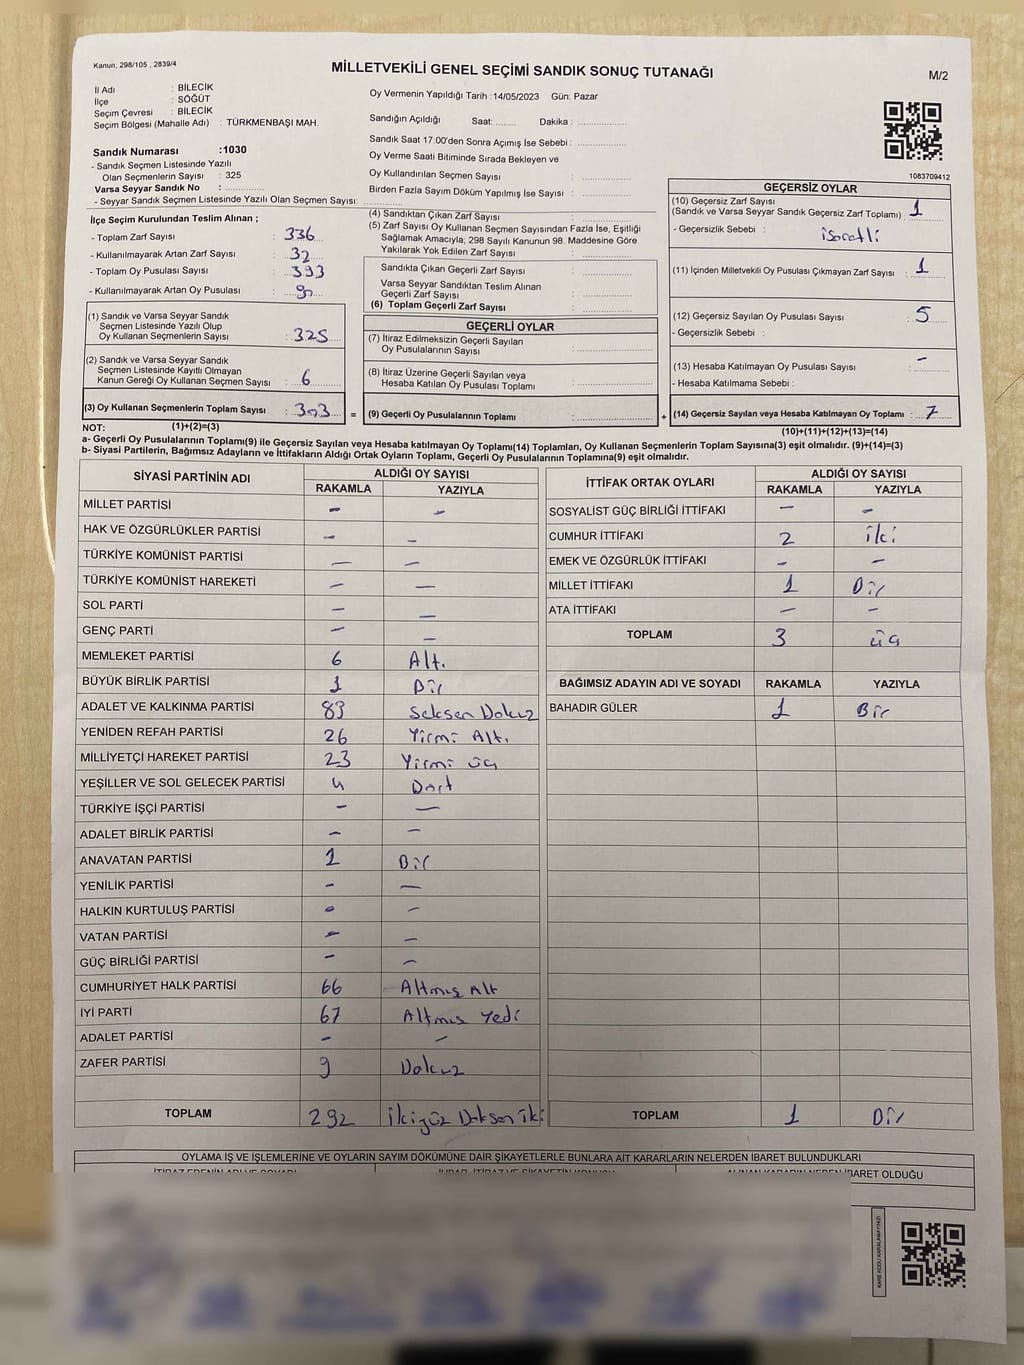 Kanun: 298/105 , 2839/4
MİLLETVEKİLİ GENEL SEÇİMİ SANDIK SONUÇ TUTANAĞI
M/2
İl Adı : BİLECİK
İlçe : SÖĞÜT
Seçim Çevresi : BİLECİK
Seçim Bölgesi (Mahalle Adı) : TÜRKMENBAŞI MAH.
Sandık Numarası :1030
- Sandık Seçmen Listesinde Yazılı
Olan Seçmenlerin Sayısı : 325
Varsa Seyyar Sandık No :
- Seyyar Sandık Seçmen Listesinde Yazılı Olan Seçmen Sayısı:
Oy Vermenin Yapıldığı Tarih :14/05/2023 Gün: Pazar
Sandığın Açıldığı Saat: ........ Dakika : ....................
Sandık Saat 17:00'den Sonra Açımış İse Sebebi : ....................
Oy Verme Saati Bitiminde Sırada Bekleyen ve
Oy Kullandırılan Seçmen Sayısı : ....................
Birden Fazla Sayım Döküm Yapılmış İse Sayısı : ....................
1083709412
İlçe Seçim Kurulundan Teslim Alınan ;
- Toplam Zarf Sayısı : 336
- Kullanılmayarak Artan Zarf Sayısı : 32
- Toplam Oy Pusulası Sayısı : 393
- Kullanılmayarak Artan Oy Pusulası :
(1) Sandık ve Varsa Seyyar Sandık
Seçmen Listesinde Yazılı Olup
Oy Kullanan Seçmenlerin Sayısı : 325
(2) Sandık ve Varsa Seyyar Sandık
Seçmen Listesinde Kayıtlı Olmayan
Kanun Gereği Oy Kullanan Seçmen Sayısı : 6
(3) Oy Kullanan Seçmenlerin Toplam Sayısı : 303 =
(1)+(2)=(3)
(4) Sandıktan Çıkan Zarf Sayısı : ....................
(5) Zarf Sayısı Oy Kullanan Seçmen Sayısından Fazla İse, Eşitliği
Sağlamak Amacıyla; 298 Sayılı Kanunun 98. Maddesine Göre
Yakılarak Yok Edilen Zarf Sayısı : ....................
Sandıkta Çıkan Geçerli Zarf Sayısı : ....................
Varsa Seyyar Sandıktan Teslim Alınan
Geçerli Zarf Sayısı : ....................
(6) Toplam Geçerli Zarf Sayısı : ....................
GEÇERLİ OYLAR
(7) İtiraz Edilmeksizin Geçerli Sayılan
Oy Pusulalarının Sayısı : ....................
(8) İtiraz Üzerine Geçerli Sayılan veya
Hesaba Katılan Oy Pusulası Toplamı : ....................
(9) Geçerli Oy Pusulalarının Toplamı : .................... +
GEÇERSİZ OYLAR
(10) Geçersiz Zarf Sayısı
(Sandık ve Varsa Seyyar Sandık Geçersiz Zarf Toplamı) : 1
- Geçersizlik Sebebi : işaretli
(11) İçinden Milletvekili Oy Pusulası Çıkmayan Zarf Sayısı : 1
(12) Geçersiz Sayılan Oy Pusulası Sayısı : 5
- Geçersizlik Sebebi :
(13) Hesaba Katılmayan Oy Pusulası Sayısı : -
- Hesaba Katılmama Sebebi :
(14) Geçersiz Sayılan veya Hesaba Katılmayan Oy Toplamı : 7
(10)+(11)+(12)+(13)=(14)
NOT:
a- Geçerli Oy Pusulalarının Toplamı(9) ile Geçersiz Sayılan veya Hesaba katılmayan Oy Toplamı(14) Toplamları, Oy Kullanan Seçmenlerin Toplam Sayısına(3) eşit olmalıdır. (9)+(14)=(3)
b- Siyasi Partilerin, Bağımsız Adayların ve İttifakların Aldığı Ortak Oyların Toplamı, Geçerli Oy Pusulalarının Toplamına(9) eşit olmalıdır.
SİYASİ PARTİNİN ADI ALDIĞI OY SAYISI
RAKAMLA YAZIYLA
MİLLET PARTİSİ - -
HAK VE ÖZGÜRLÜKLER PARTİSİ - -
TÜRKİYE KOMÜNİST PARTİSİ - -
TÜRKİYE KOMÜNİST HAREKETİ - -
SOL PARTİ - -
GENÇ PARTİ - -
MEMLEKET PARTİSİ 6 Altı
BÜYÜK BİRLİK PARTİSİ 1 Bir
ADALET VE KALKINMA PARTİSİ 89 Seksen Dokuz
YENİDEN REFAH PARTİSİ 26 Yirmi Altı
MİLLİYETÇİ HAREKET PARTİSİ 23 Yirmi üç
YEŞİLLER VE SOL GELECEK PARTİSİ 4 Dört
TÜRKİYE İŞÇİ PARTİSİ - -
ADALET BİRLİK PARTİSİ - -
ANAVATAN PARTİSİ 1 Bir
YENİLİK PARTİSİ - -
HALKIN KURTULUŞ PARTİSİ - -
VATAN PARTİSİ - -
GÜÇ BİRLİĞİ PARTİSİ - -
CUMHURİYET HALK PARTİSİ 66 Altmış Altı
İYİ PARTİ 67 Altmış Yedi
ADALET PARTİSİ - -
ZAFER PARTİSİ 9 Dokuz
TOPLAM 292 İkiyüz Doksan iki
İTTİFAK ORTAK OYLARI ALDIĞI OY SAYISI
RAKAMLA YAZIYLA
SOSYALİST GÜÇ BİRLİĞİ İTTİFAKI - -
CUMHUR İTTİFAKI 2 iki
EMEK VE ÖZGÜRLÜK İTTİFAKI - -
MİLLET İTTİFAKI 1 Bir
ATA İTTİFAKI - -
TOPLAM 3 üç
BAĞIMSIZ ADAYIN ADI VE SOYADI RAKAMLA YAZIYLA
BAHADIR GÜLER 1 Bir
TOPLAM 1 Bir
OYLAMA İŞ VE İŞLEMLERİNE VE OYLARIN SAYIM DÖKÜMÜNE DAİR ŞİKAYETLERLE BUNLARA AİT KARARLARIN NELERDEN İBARET BULUNDUKLARI
İTİRAZ EDENİN ADI VE SOYADI İHBAR, İTİRAZ VE ŞİKAYETİN KONUSU ALINAN KARARIN NEDEN İBARET OLDUĞU
KARE KODU KARALAMAYINIZ!